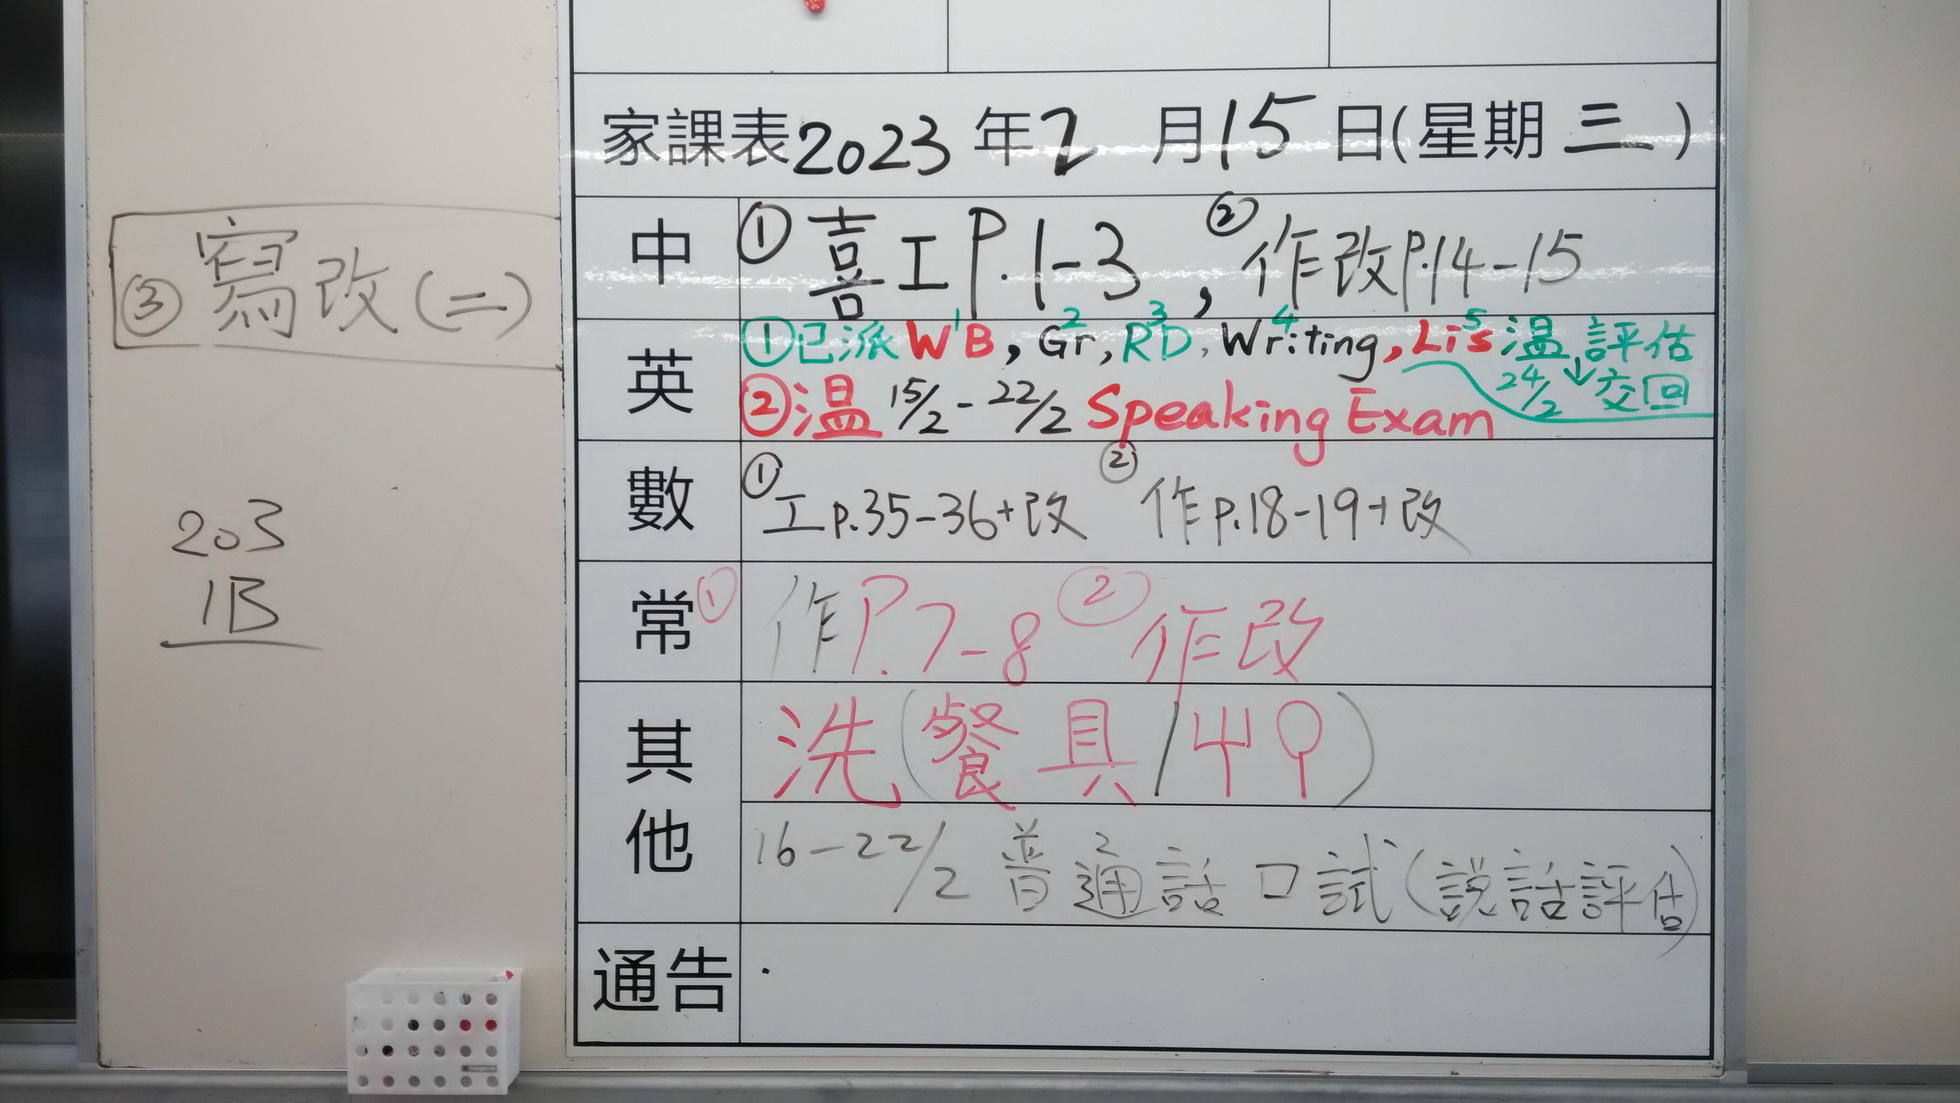 家課表2023年2月15日(星期三)
中 ①喜工P.1-3, ②作改P.14-15
③寫改(二)
英 ①已派WB, Gr, RD, Writing, Lis 温評估
1 2 3 4 5
24/2 交回
②温 15/2-22/2 Speaking Exam
數 ①工p.35-36+改 ②作p.18-19+改
常 ①作P.7-8 ②作改
其他 洗(餐具/
16-22/2 普通話口試(説話評估)
通告
203
1B